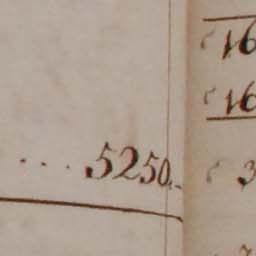 16
16
... 5250.-
3